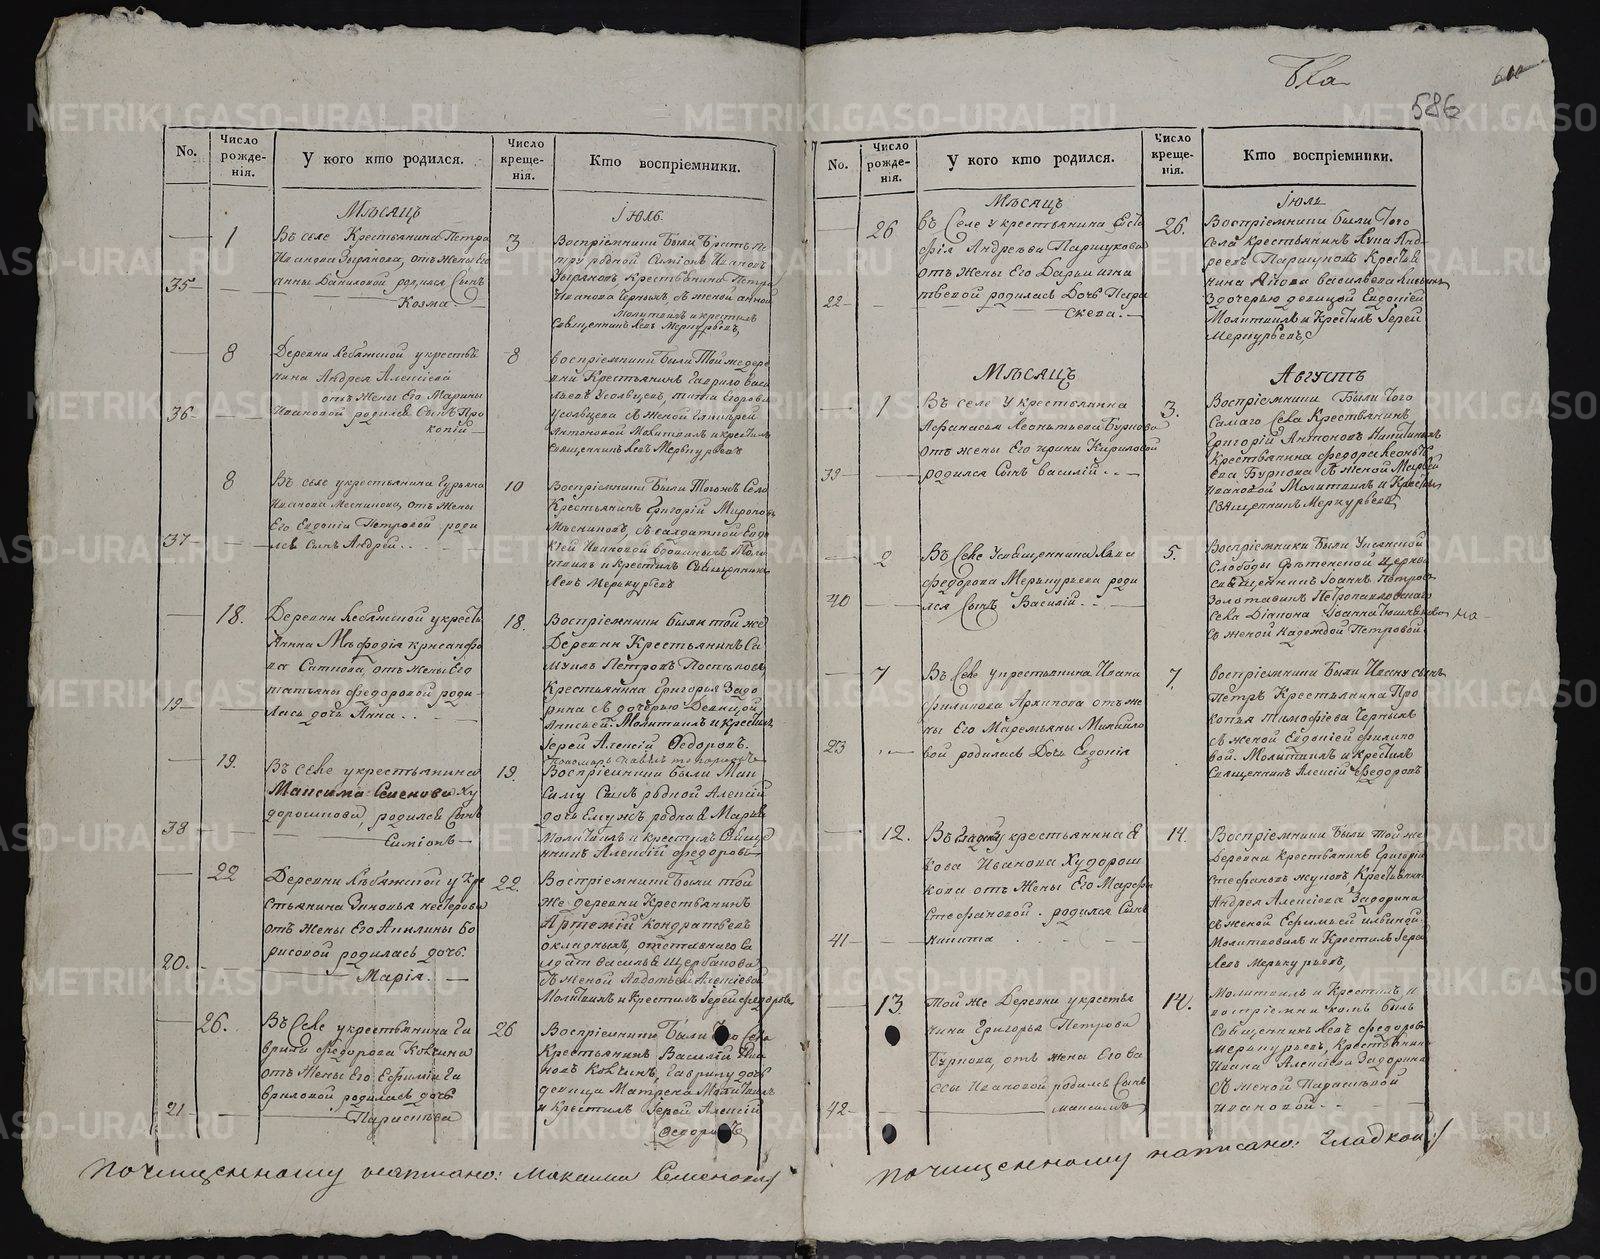 586
No.
Число рожде-нія.
У кого кто родился.
Число креще-нія.
Кто воспріемники.
Мѣсяцъ
Іюль
1
Въ селе Крестьянина Петра
Иванова Зырянова, отъ жены Его
Анны Даниловой родился Сынъ
35
Козма
3
Воспріемники Были Братъ Пе
тру родной Симіонъ Ивановъ
Зыряновъ Крестьянина Петра
Иванова Черныхъ, съ женой Анной
Молитвилъ и крестилъ
Священникъ Левъ Меркурьевъ,
8
Деревни Лебяжской у крестья
нина Андрея Алексіева
отъ жены Его Марины
36
Ивановой родился Сынъ Про
копій
8
Воспріемники Были Той же дере
вни Крестьянинъ Гаврило Васи
льевъ Усольцевъ, Тита Егорова
Усольцева съ женой
Антоновой Молитвилъ и крестилъ
Священникъ Левъ Меркурьевъ
8
Въ селе у крестьянина Гурьяна
Иванова Месникова, отъ жены
Его Евдокіи Петровой роди
37
лся Сынъ Андрей
10
Воспріемники Были Тогожъ Села
Крестьянинъ Григорій Мироновъ
Мѣсниковъ, съ салдаткой Евдо
кіей Ивановой Моли
твилъ и крестилъ Священникъ
Левъ Меркурьевъ
18.
Деревни Лебяжской у кресть
янина Мефодія Крисанфо
ва Сапкова, отъ жены Его
Татьяны Федоровой роди
19
лась дочь Анна
18.
Воспріемники были той же
Деревни Крестьянинъ Са
муилъ Петровъ Постыловъ,
Крестьянина Григорья Задо
рина съ дочерью Девицой
Анисьей. Молитвилъ и крестилъ
Іерей Алексій Федоровъ.
19.
Въ селе у крестьянина
Максима Семенова Ху
дорошкова, родился Сынъ
38
Симіонъ
19.
Воспріемники были Мак
симу Сынъ родной Алексій
дочь Емужъ родная Марья
Молитвилъ и крестилъ Свяще
нникъ Алексій Федоровъ
22
Деревни Лебяжской у кре
стьянина Зиновья Нестерова
отъ жены Его Акилины Бо
рисовой родилась дочь
20.
Марія.
22.
Воспріемники Были той
же деревни Крестьянинъ
Артемій Кондратьевъ
Окладныхъ, отставнаго са
лдата Василья Щербакова
съ женой Авдотьей Алексіевой
Молитвилъ и Крестилъ Іерей Федоровъ
26.
Въ Селе у крестьянина Га
врила Федорова Ковина
отъ жены Его Ефиміи Га
вриловой родилась дочь
21
Параскева
26
Воспріемники Были Того Села
Крестьянинъ Василій Ива
новъ Ковинъ, Гаврилу дочь
девица Матрена Молитвилъ
и Крестилъ Іерей Алексій
Федоровъ
По чищенному написано: Максима Семенова/
No.
Число рожде-нія.
У кого кто родился.
Число креще-нія.
Кто воспріемники.
Мѣсяцъ
Іюль
26
Въ Селе у крестьянина Евста
фія Андреева Паршукова
отъ жены Его Варвары Игна
22
тьевой родилась Дочь Пара
скева.
26.
Воспріемники были Того
Села крестьянинъ Лука Анд
реевъ Паршуковъ Крестья
нина Васильева
Здочерью девицой Евдокіей
Молитвилъ и Крестилъ Іерей
Меркурьевъ
Мѣсяцъ
Августъ
1
Въ селе У крестьянина
Афанасья Леонтьева Буркова
отъ жены Его Ирины Кириловой
39
родился Сынъ Василій
3.
Воспріемники Были Того
Самаго Села Крестьянинъ
Григорій Антоновъ
Крестьянина Федора Леонть
ева Буркова съ женой Марьей
Ивановой Молитвилъ и Крестилъ
Священникъ Меркурьевъ
2
Въ Селе У священника Льва
Федорова Меркурьева роди
40
лся Сынъ Василій
5.
Воспріемники Были Уксянской
Слободы Срѣтенской Церкви
Священникъ Іоаннъ Петровъ
Золотавинъ Петропавловскаго
Села Діакона Іоанна Тюшнякова
со женой Надеждой Петровой.
7
Въ Селе у крестьянина Ивана
Филипова Архипова отъ же
ны Его Маремьяны Михайло
23
вой родилась Дочь Евдокія
7.
Воспріемники Были Ивану Сынъ
Петръ Крестьянина Про
копья Тимофіева Черныхъ
съ женой Евдокіей Филипо
вой. Молитвилъ и крестилъ
Священникъ Алексій Федоровъ
12.
Въ Гладкой у крестьянина Я
кова Иванова Худорош
кова отъ Жены Его Марфы
Стефановой. родился Сынъ
41
Никита
14.
Воспріемники Были той же
Деревни Крестьянинъ Григорій
Стефановъ Жуковъ Крестьянина
Андрея Алексіева Задорина
съ женой Ефимьей Ильиной.
Молитвовалъ и Крестилъ Іерей
Левъ Меркурьевъ,
13.
Той же Деревни у крестья
нина Григорья Петрова
Буркова, отъ жены Его Ва
ссы Ивановой родился Сынъ
42
Максимъ
14.
Молитвилъ и Крестилъ и
воспріемникомъ былъ
Священникъ Левъ Федоровъ
Меркурьевъ, Крестьянина
Ивана Алексіева Задорина
съ женой Параскевой
Ивановой.
По чищенному написано: Гладкой:/
METRIKI.GASO-URAL.RU